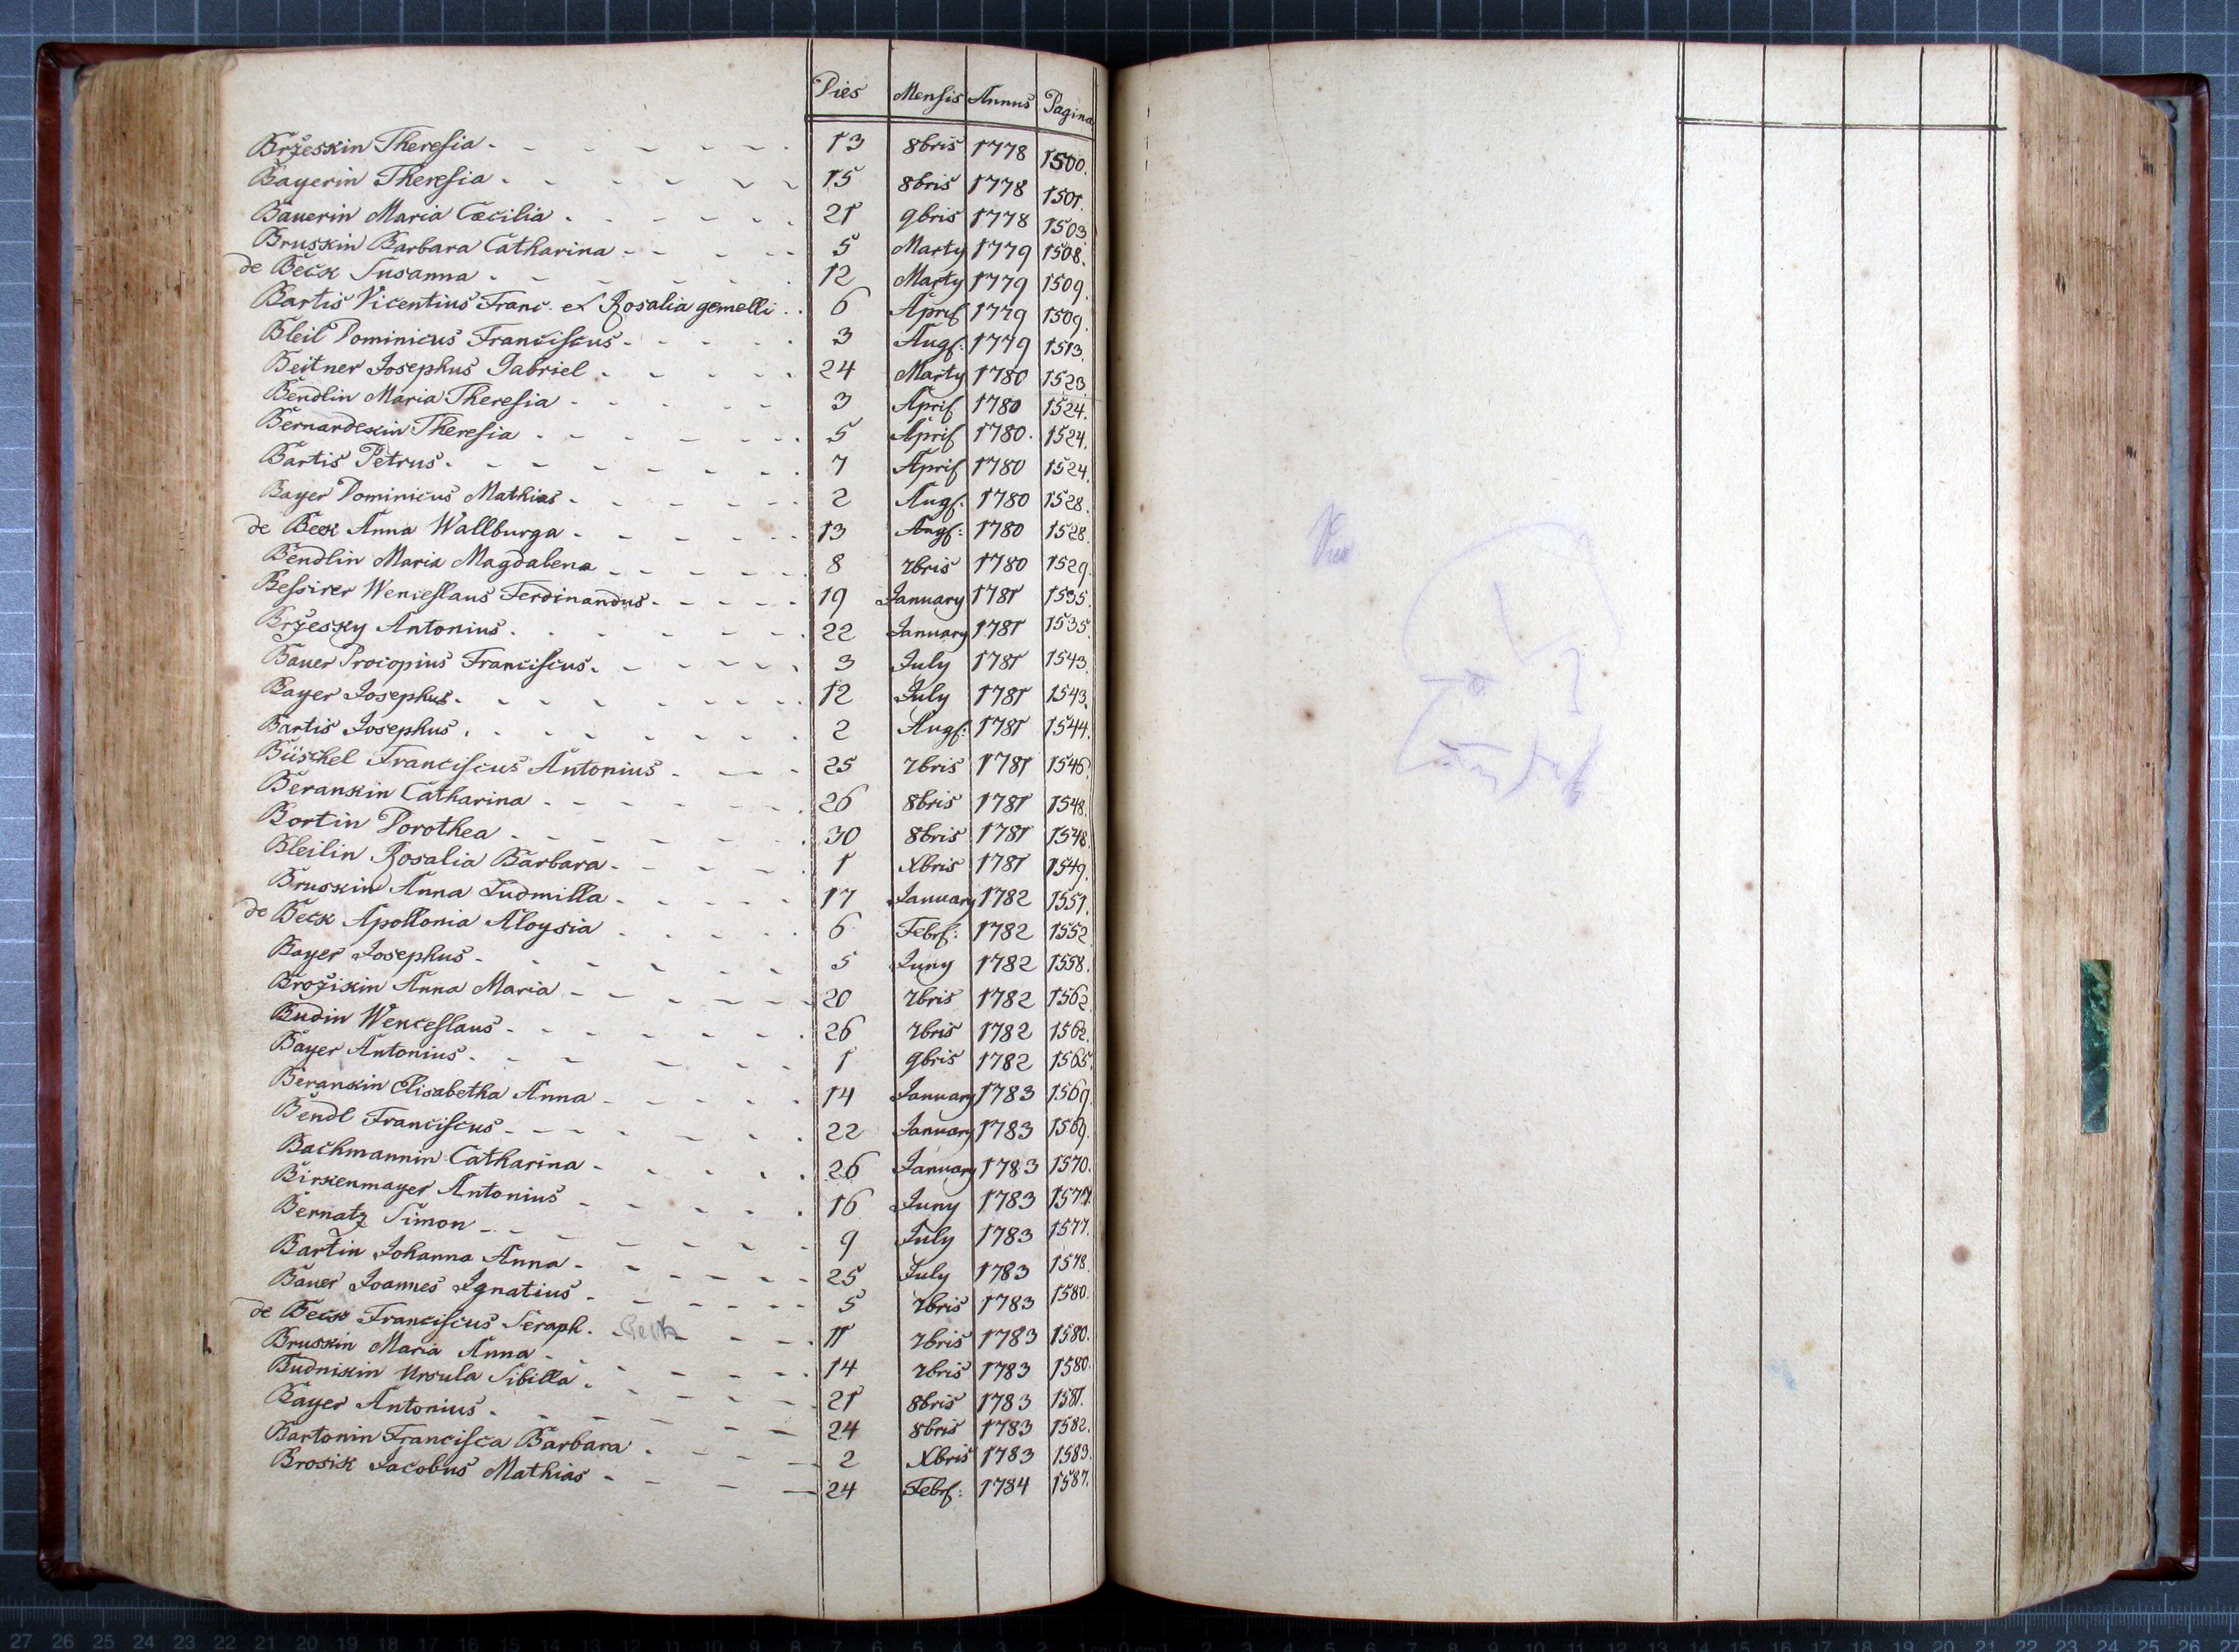 Dies Mensis Annus Pagina
Brzeskin Theresia 13 8bris 1778 1500.
Bayerin Theresia 15 8bris 1778 1501.
Bauerin Maria Cæcilia 21 9bris 1778 1503.
Bruskin Barbara Catharina 5 Marty 1779 1508.
de Beck Susanna 12 Marty 1779 1509.
Bartis Vicentius Franc. et Rosalia gemelli 6 April 1779 1509.
Bleil Dominicus Franciscus 3 Augs: 1779 1513.
Beitner Josephus Gabriel 24 Marty 1780 1523.
Bendlin Maria Theresia 3 April 1780 1524.
Bernardeskin Theresia 5 April 1780. 1524.
Bartis Petrus 7 April 1780 1524.
Bayer Dominicus Mathias 2 Augs: 1780 1528.
de Beck Anna Wallburga 13 Augs: 1780 1528.
Bendlin Maria Magdalena 8 7bris 1780 1529.
Bessirer Wenceslaus Ferdinandus 19 January 1781 1535.
Brzesky Antonius 22 January 1781 1535.
Bauer Procopius Franciscus 3 July 1781 1543.
Bayer Josephus 12 July 1781 1543.
Bartis Josephus 2 Augs: 1781 1544.
Büschel Franciscus Antonius 25 7bris 1781 1546.
Berankin Catharina 26 8bris 1781 1548.
Bortin Dorothea 30 8bris 1781 1548.
Bleilin Rosalia Barbara 1 Xbris 1781 1549.
Bruskin Anna Ludmilla 17 January 1782 1551.
de Beck Apollonia Aloysia 6 Febr: 1782 1552.
Bayer Josephus 5 Juny 1782 1558.
Brozikin Anna Maria 20 7bris 1782 1562.
Budin Wenceslaus 26 7bris 1782 1562.
Bayer Antonius 1 9bris 1782 1565.
Berankin Elisabetha Anna 14 January 1783 1569.
Bendl Franciscus 22 January 1783 1569.
Bachmannin Catharina 26 January 1783 1570.
Birkenmayer Antonius 16 Juny 1783 1577.
Bernatz Simon 9 July 1783 1577.
Bartin Johanna Anna 25 July 1783 1578.
Bauer Joannes Ignatius 5 7bris 1783 1580.
de Beck Franciscus Seraph. Beck 11 7bris 1783 1580.
Bruskin Maria Anna 14 7bris 1783 1580.
Budnikin Ursula Sibilla 21 8bris 1783 1581.
Bayer Antonius 24 8bris 1783 1582.
Bartonin Francisca Barbara 2 Xbris 1783 1583.
Brosik Jacobus Mathias 24 Febr: 1784 1587.
27 26 25 24 23 22 21 20 19 18 17 16 15 14 13 12 11 10 9 8 7 6 5 4 3 2 1 cm 0 cm 1 2 3 4 5 6 7 8 9 10 11 12 13 14 15 16 17 18 19 20 21 22